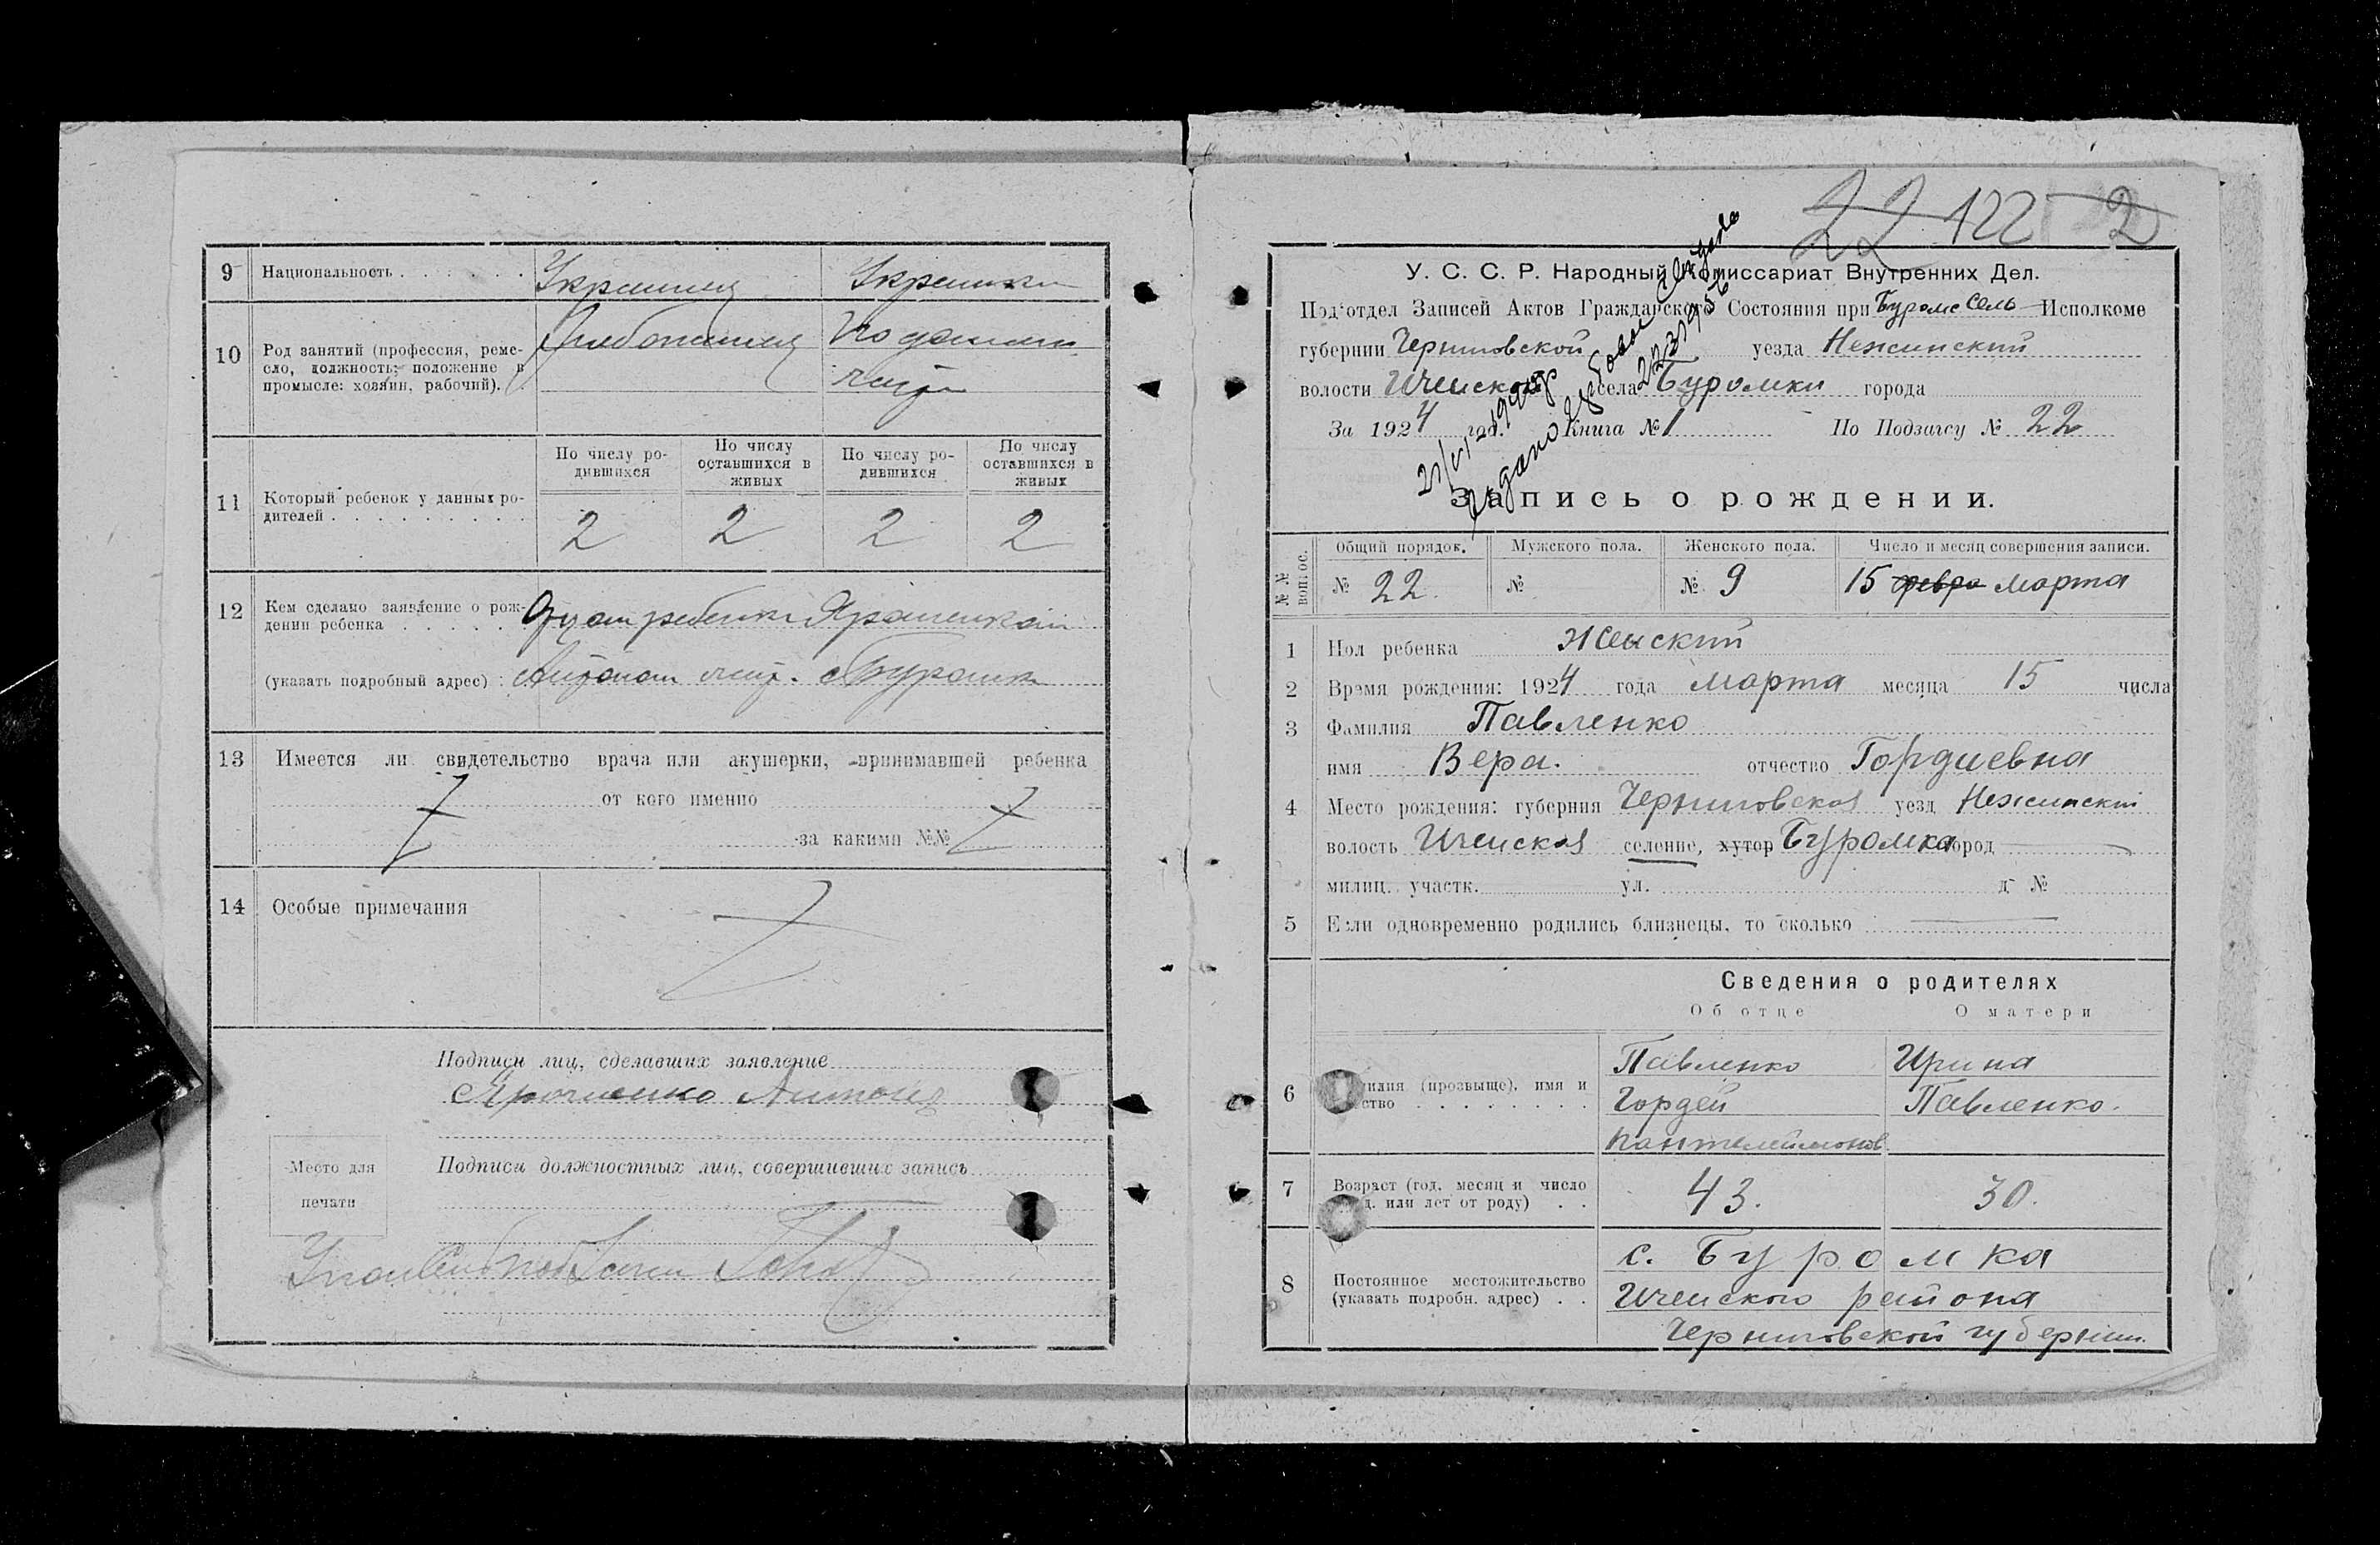 9 Национальность . . . . . . Украинец Украинка
10 Род занятий (профессия, реме-
сло, должность; положение в
промысле: хозяин, рабочий). Хлебопашец По домаш.
11 Который ребенок у данных ро-
дителей . . . . . . . . .
По числу ро-
дившихся
По числу
оставшихся в
живых
По числу ро-
дившихся
По числу
оставшихся в
живых
2 2 2 2
12 Кем сделано заявление о рож-
дении ребенка . . . . . Отцом ребенка
(указать подробный адрес) : жит. с Буромка
13 Имеется ли свидетельство врача или акушерки, принимавшей ребенка
от кого именно
за какими №№
14 Особые примечания
Подписи лиц, сделавших заявление
Антон
Место для
печати
Подписи должностных лиц, совершивших запись
22 122 2
У. С. С. Р. Народный Комиссариат Внутренних Дел.
Под‘отдел Записей Актов Гражданского Состояния при Буромс Сель Исполкоме
губернии Черниговской уезда Нежинский
волости Иченской села Буромки города
За 1924 год. Книга № 1 По Подзагсу № 22
Запись о рождении.
№ №
вопрос.
Общий порядок. Мужского пола. Женского пола. Число и месяц совершения записи.
№ 22. № № 9 15 февра марта
1 Пол ребенка женский
2 Время рождения: 1924 года марта месяца 15 числа
3 Фамилия Павленко
имя Вера. отчество Гордиевна
4 Место рождения: губерния Черниговская уезд Нежинский
волость Иченская селение, хутор Буромка город
милиц. участк. ул. д №
5 Если одновременно родились близнецы, то сколько
Сведения о родителях
Об отце О матери
6 илия (прозвище), имя и
ство . . . . . . . .
Павленко
Гордей
Пантелеймонов
Ирина
Павленко.
7 Возраст (год, месяц и число
д. или лет от роду) . . 43. 30.
8 Постоянное местожительство
(указать подробн. адрес) . .
с. Буромка
Иченского района
Черниговской губернии.